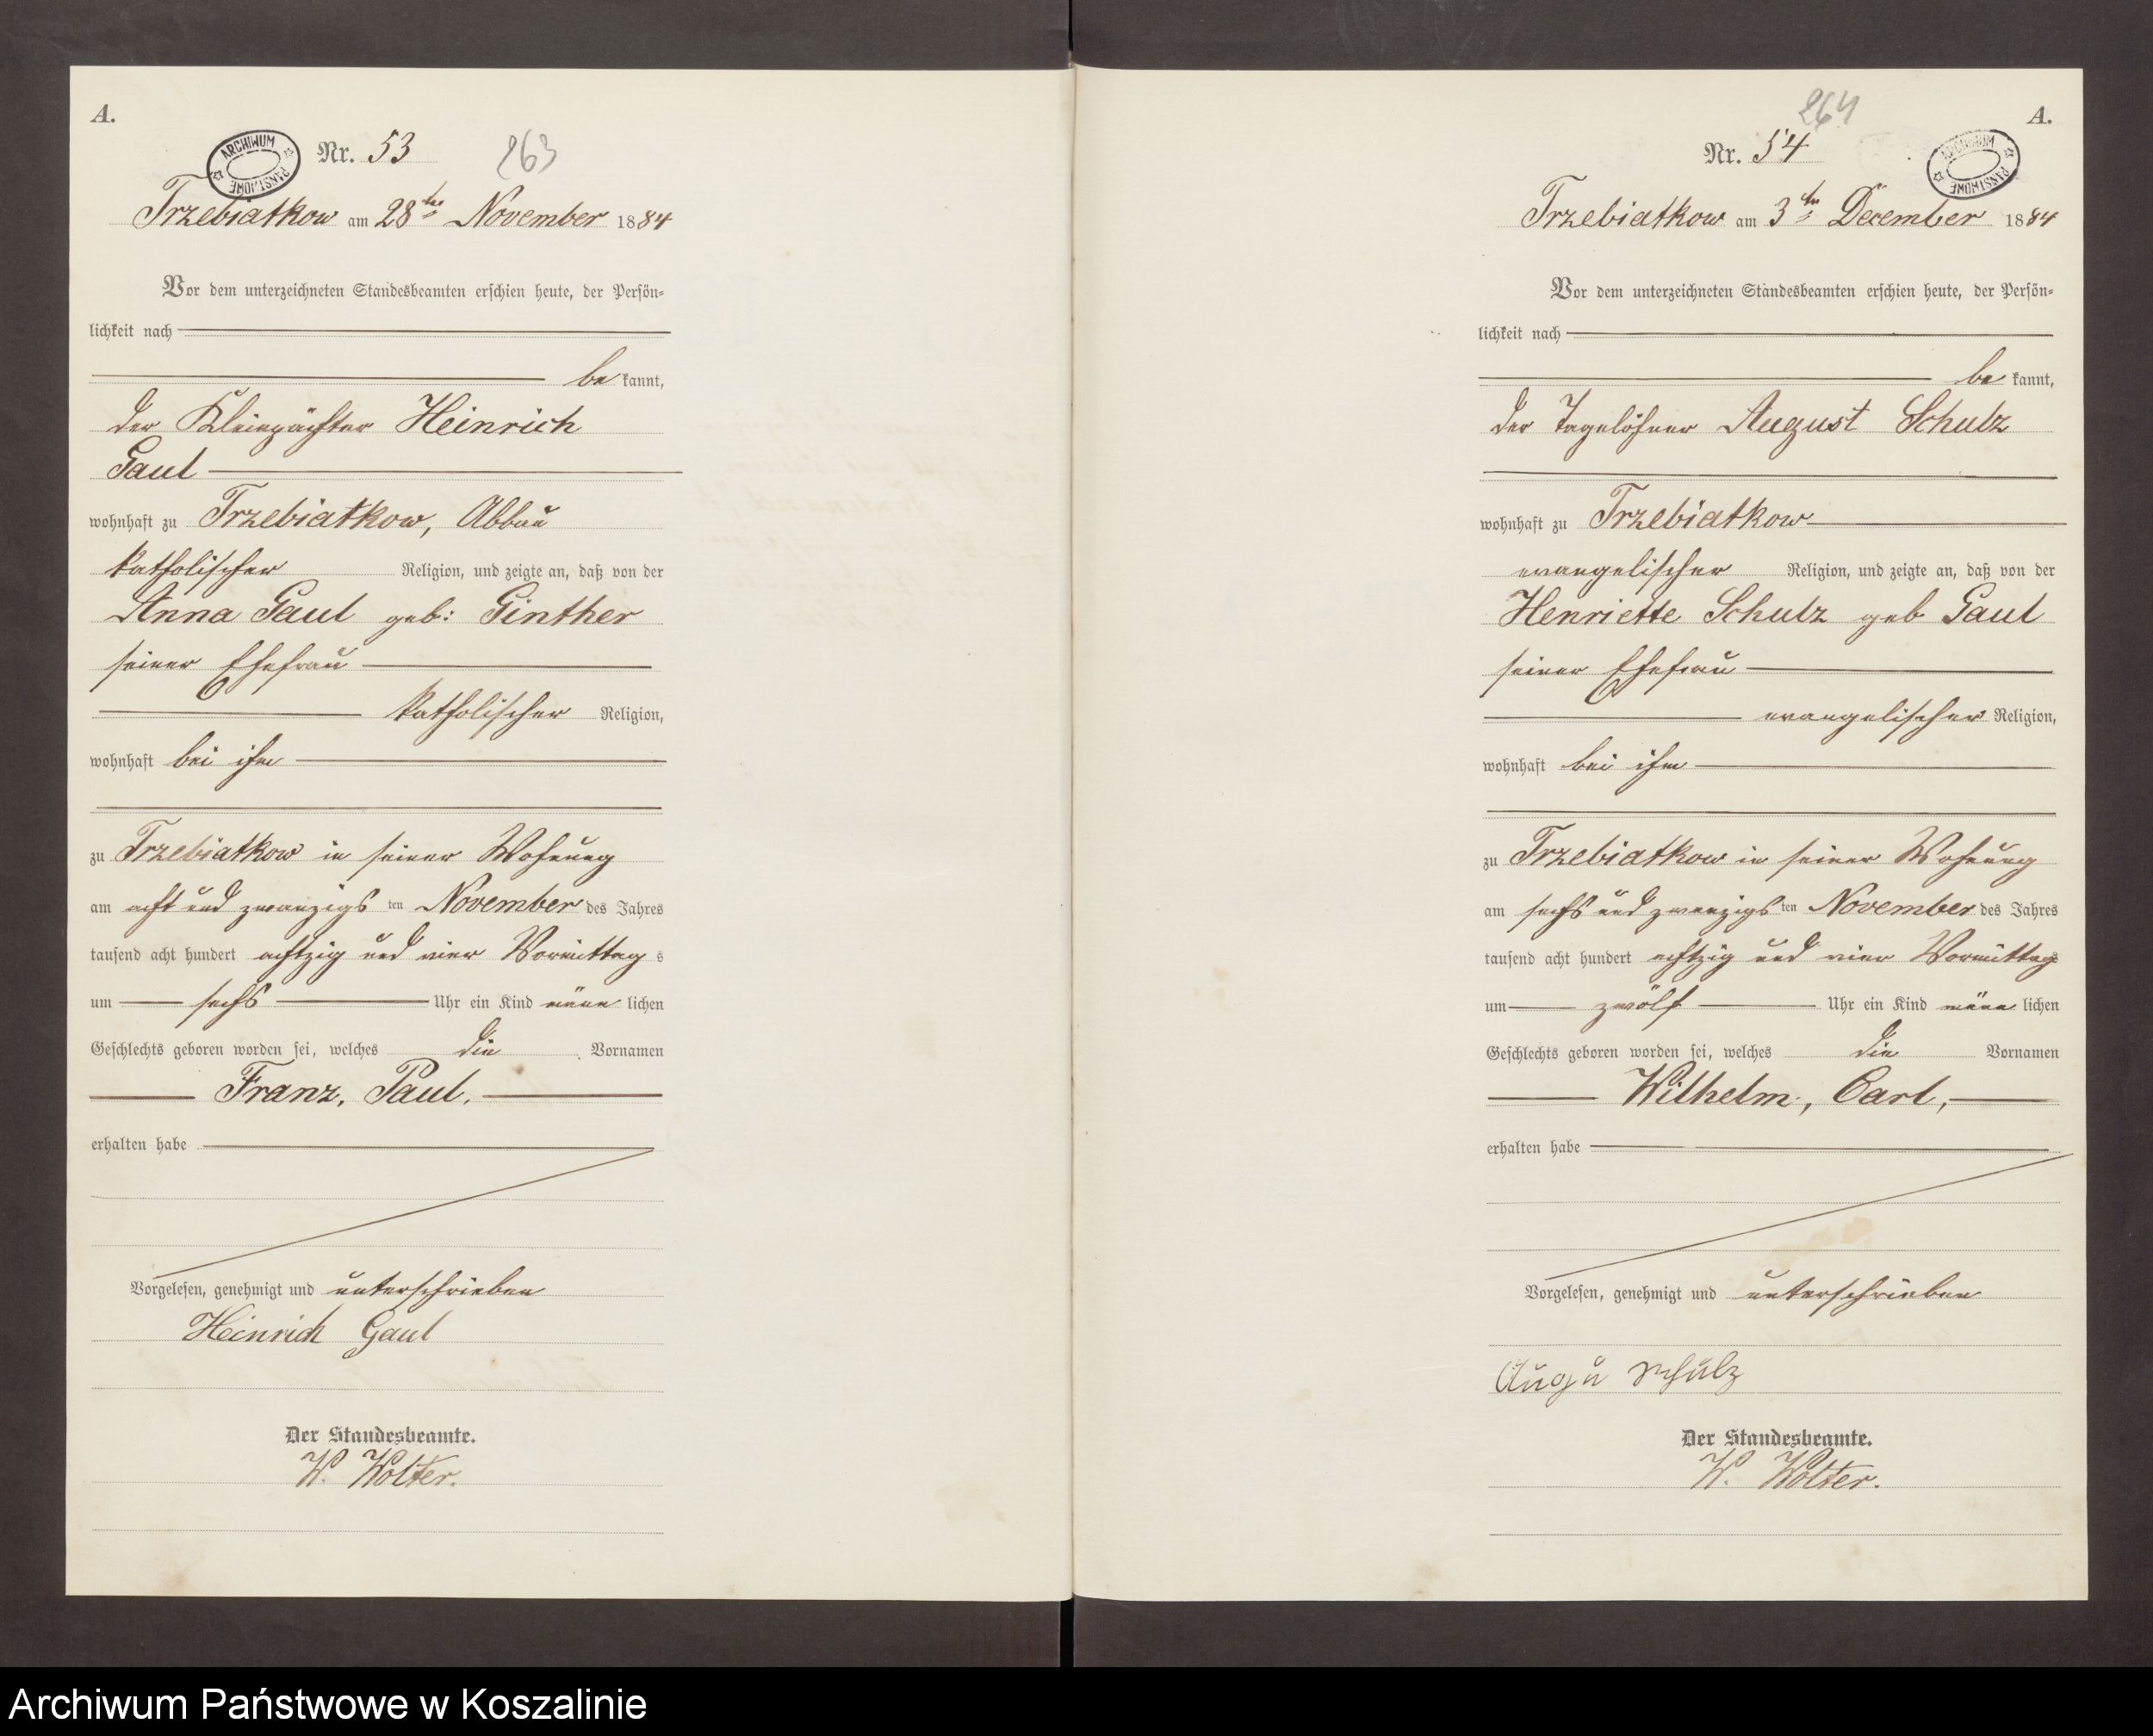 A.
Nr. 53
263
ARCHIWUM PAŃSTWOWE
Trzebiatkow am 28ten November 1884
Vor dem unterzeichneten Standesbeamten erschien heute, der Persön-
lichkeit nach
be kannt,
der Kleinpächter Heinrich
Gaul
wohnhaft zu Trzebiatkow, Abbau
katholischer Religion, und zeigte an, daß von der
Anna Gaul geb: Ginther
seiner Ehefrau
katholischer Religion,
wohnhaft bei ihm
zu Trzebiatkow in seiner Wohnung
am acht und zwanzigs ten November des Jahres
tausend acht hundert achtzig und vier Vormittag s
um sechs Uhr ein Kind männ lichen
Geschlechts geboren worden sei, welches die Vornamen
Franz, Paul,
erhalten habe
Vorgelesen, genehmigt und unterschrieben
Heinrich Gaul
Der Standesbeamte.
W. Wolter.
264
A.
Nr. 54
ARCHIWUM PAŃSTWOWE
Trzebiatkow am 3ten December 1884
Vor dem unterzeichneten Standesbeamten erschien heute, der Persön-
lichkeit nach
be kannt,
der Tagelöhner August Schulz
wohnhaft zu Trzebiatkow
evangelischer Religion, und zeigte an, daß von der
Henriette Schulz geb Gaul
seiner Ehefrau
evangelischer Religion,
wohnhaft bei ihm
zu Trzebiatkow in seiner Wohnung
am sechs und zwanzigs ten November des Jahres
tausend acht hundert achtzig und vier Vormittags
um zwölf Uhr ein Kind männ lichen
Geschlechts geboren worden sei, welches die Vornamen
Wilhelm, Carl,
erhalten habe
Vorgelesen, genehmigt und unterschrieben
Schulz
Der Standesbeamte.
W. Wolter.
Archiwum Państwowe w Koszalinie